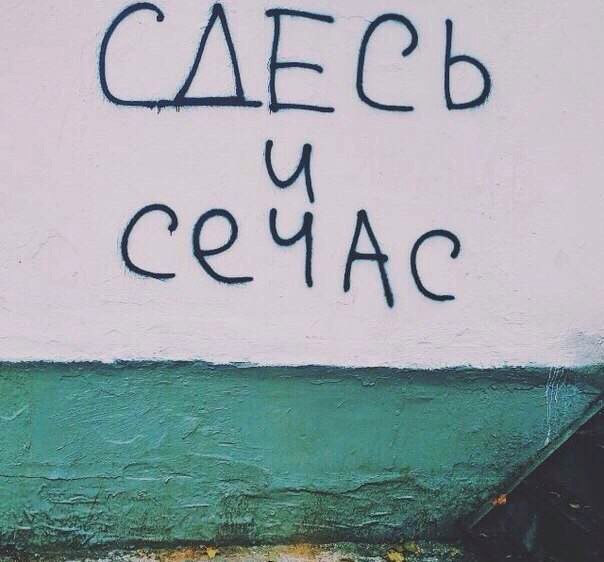 СДЕСЬ
и
сечАс